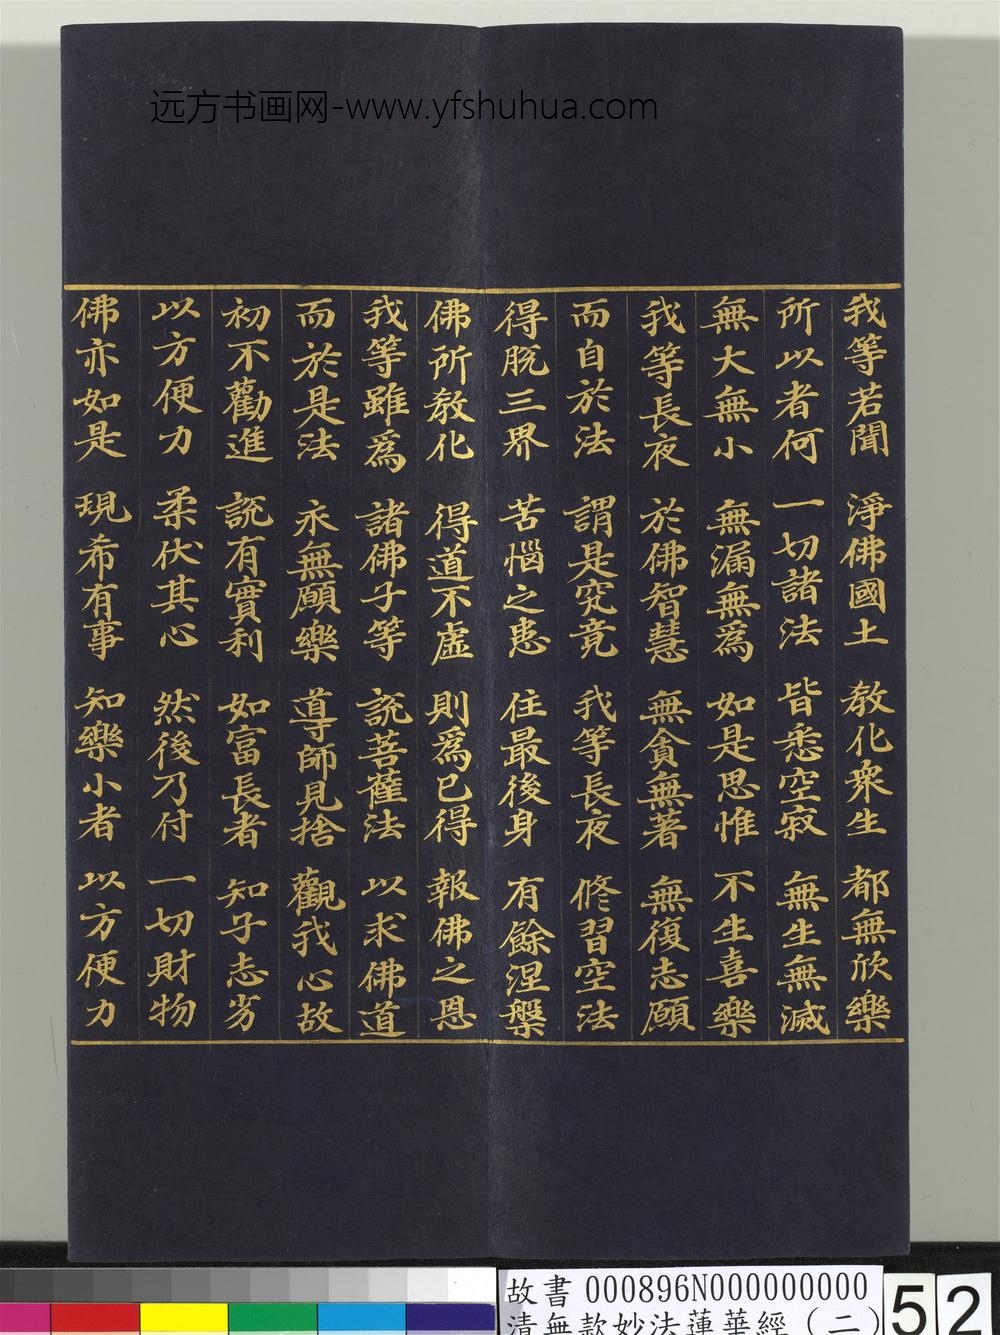 远方书画网-www.yfshuhua.com
我等若聞 淨佛國土 教化衆生 都無欣樂
所以者何 一切諸法 皆悉空寂 無生無滅
無大無小 無漏無為 如是思惟 不生喜樂
我等長夜 於佛智慧 無貪無著 無復志願
而自於法 謂是究竟 我等長夜 修習空法
得脫三界 苦惱之患 住最後身 有餘涅槃
佛所教化 得道不虛 則為已得 報佛之恩
我等雖為 諸佛子等 說菩薩法 以求佛道
而於是法 永無願樂 導師見捨 觀我心故
初不勸進 說有實利 如富長者 知子志劣
以方便力 柔伏其心 然後乃付 一切財物
佛亦如是 現希有事 知樂小者 以方便力
故書 000896N000000000
清無款妙法蓮華經（二）
52